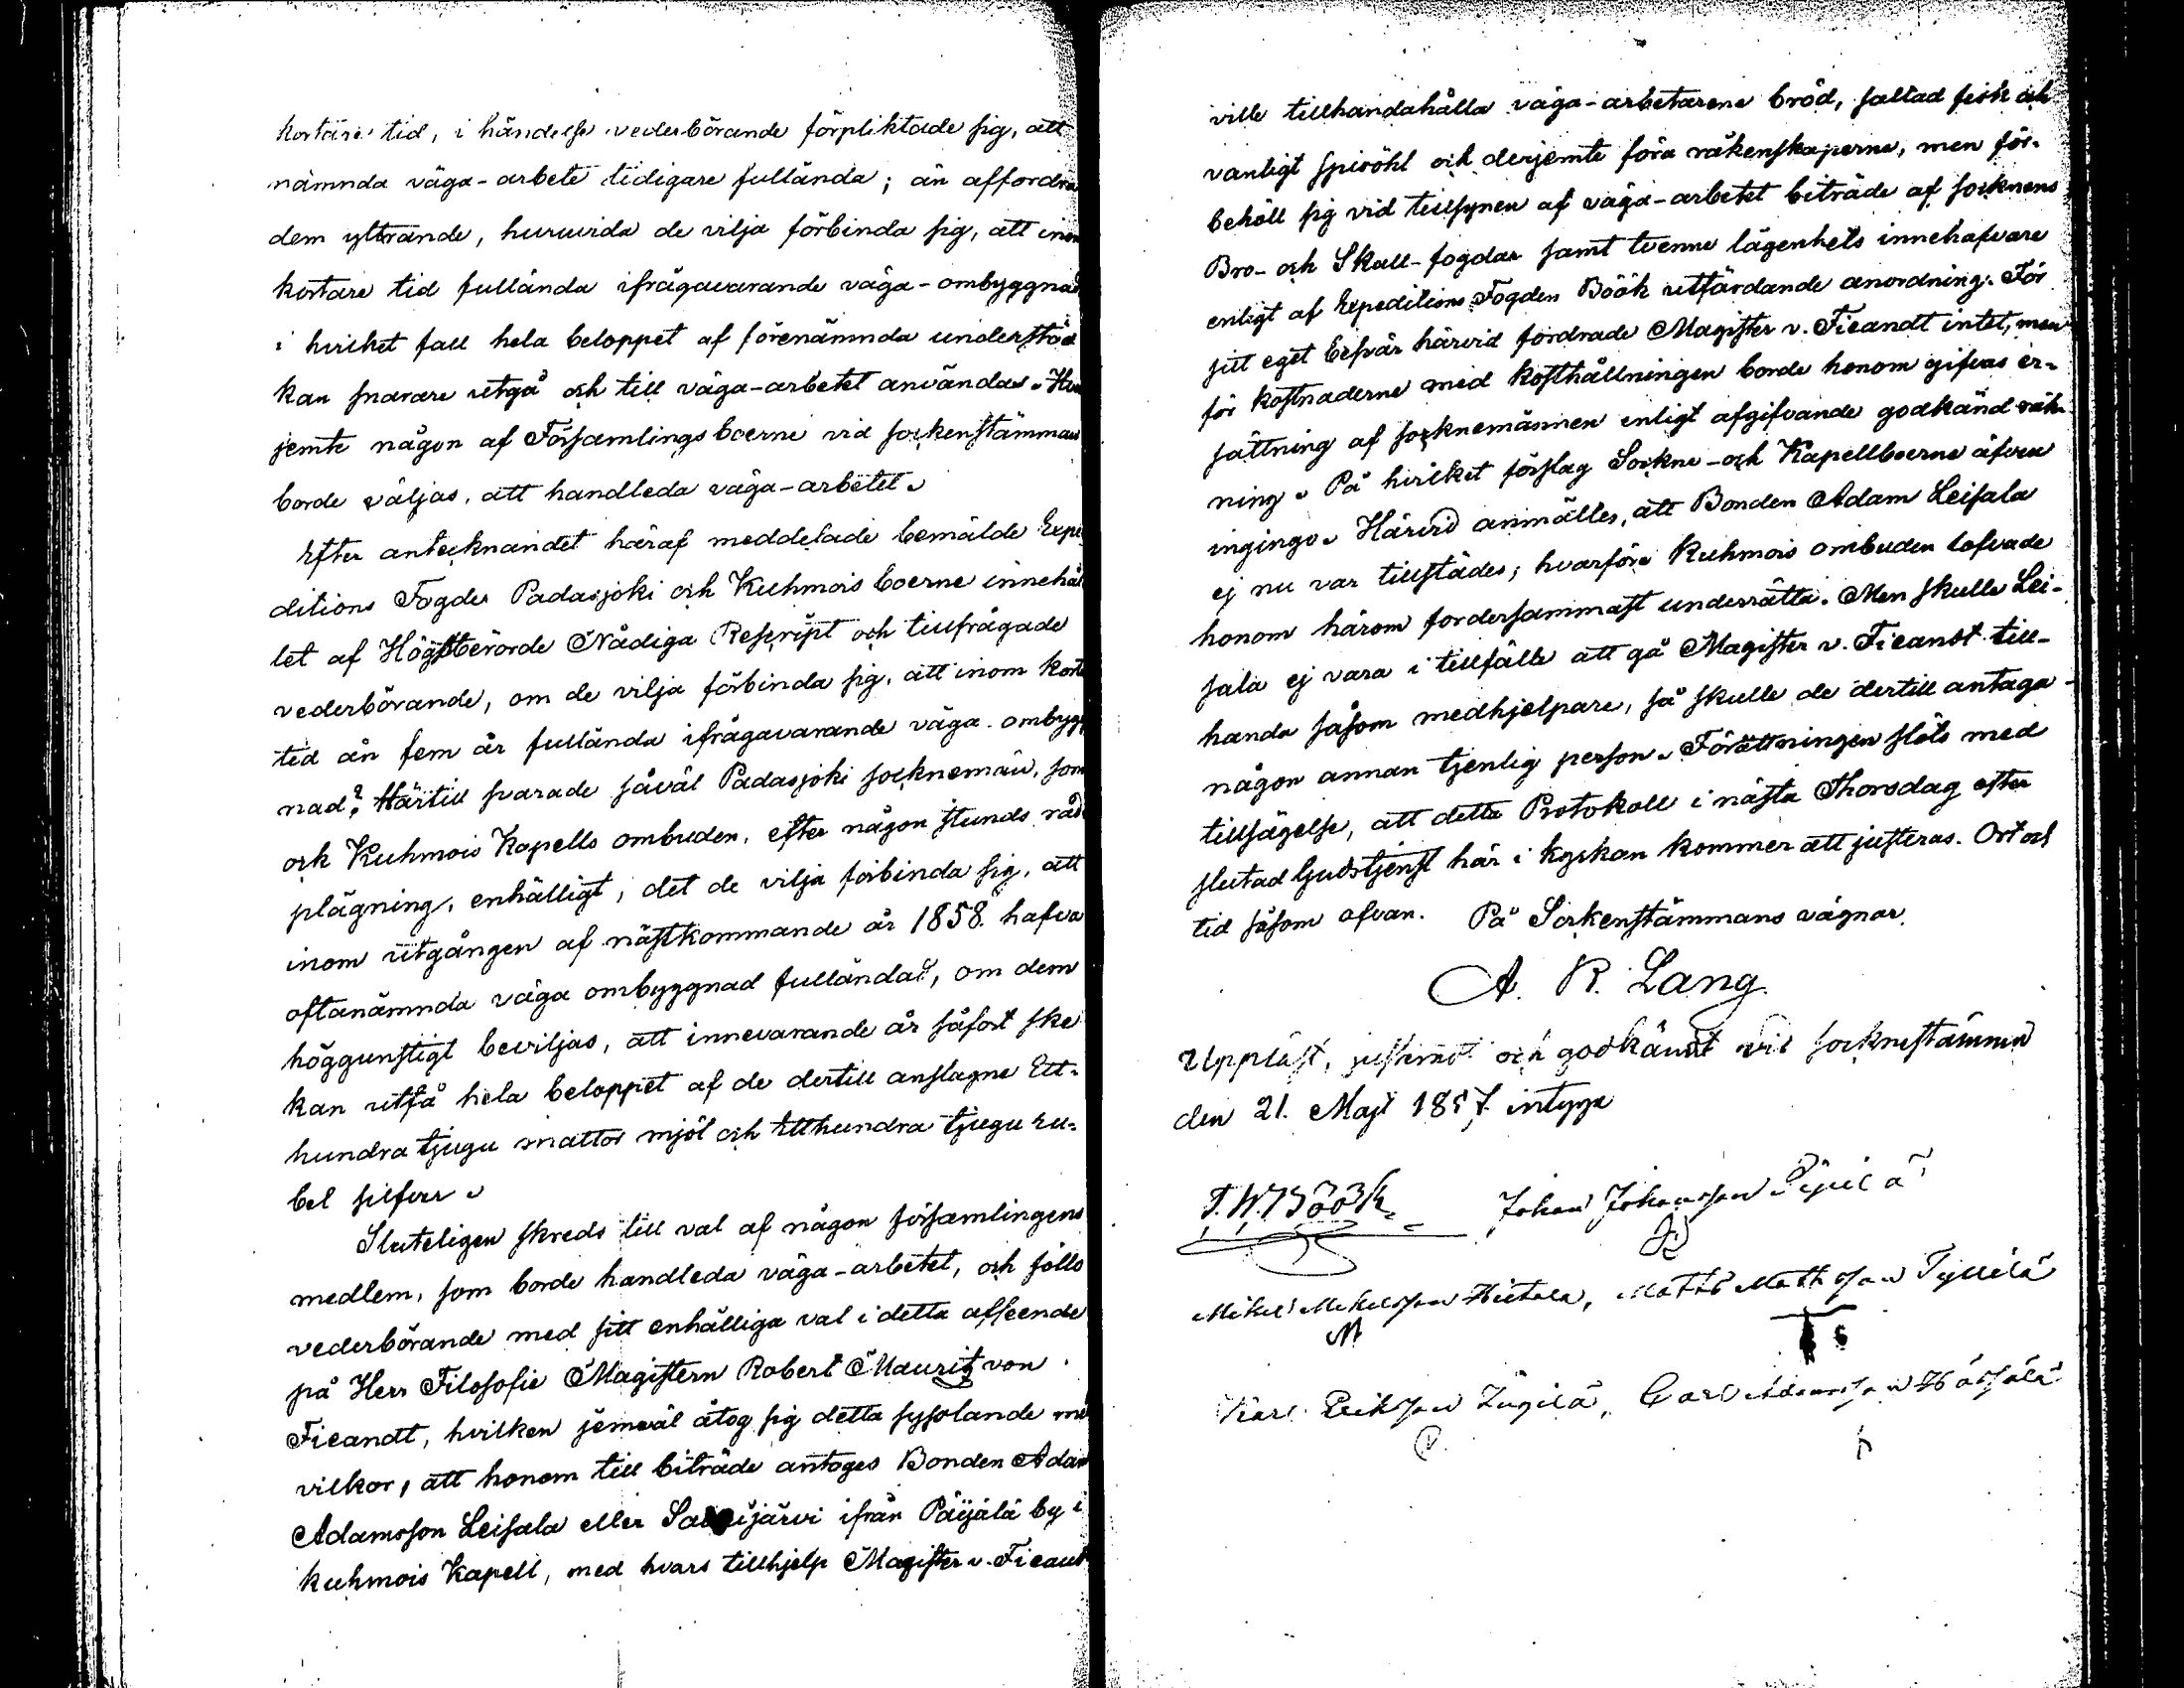 kortare tid, i händelse vederbörande förpliktade sig, att
nämnda väga-arbete tidigare fullända; än affordra
dem yttrande, huruvida de vilja förbinda sig, att inom
kortare tid fullända ifrågavarande väga-ombyggnad
i hvilket fall hela beloppet af förenämnda understöd
kan snarare utgå och till väga-arbetet användas. Hvar
jemte någon af Församlingsboerne vid sockenstämman
borde väljas, att handleda väga-arbetet.
Efter antecknandet häraf meddelade bemälde Expe
ditions Fogde Padasjoki och Kuhmois boerne innehål
let af Högstberörde Nådiga Reskript och tillfrågade
vederbörande, om de vilja förbinda sig, att inom kort
tid än fem år fullända ifrågavarande väga-ombygg
nad? Härtill svarade såväl Padasjoki socknemän, som
ock Kuhmois Kapells ombuden, efter någon stunds råd
plägning, enhälligt, det de vilja förbinda sig, att
inom utgången af nästkommande år 1858. hafva
oftanämnda väga ombyggnad fulländad, om dem
höggunstigt beviljas, att innevarande år såfort ske
kan utfå hela beloppet af de dertill anslagne Ett-
hundra tjugu mattor mjöl och Etthundra tjugu ru-
bel silfver.
Sluteligen skreds till val af någon församlingens
medlem, som borde handleda väga-arbetet, och föllo
vederbörande med sitt enhälliga val i detta afseende
på Herr Filosofie Magistern Robert Mauritz von
Fieandt, hvilken jemväl åtog sig detta sysslande med
vilkor, att honom till biträde antages Bonden Adam
Adamsson Leisala eller ifrån Päijälä by i
Kuhmois Kapell, med hvars tillhjelp Magister v. Fieandt
ville tillhandahålla väga-arbetarene bröd, saltad fisk och
vanligt spisöhl och derjemte föra räkenskaperne, men för-
behöll sig vid tillsynen af väga-arbetet biträde af socknens
Bro- och Skall-fogdar samt tvenne lägenhets innehafvare
enligt af Expeditions Fogden Böök utfärdande anordning. För
sitt eget besvär härvid fordrade Magister v. Fieandt intet, men
för kostnaderne med kosthållningen borde honom gifvas er-
sättning af socknemännen enligt afgifvande godkänd räk-
ning. På hvilket förslag Sockne- och Kapellboerne äfven
ingingo. Härvid anmältes, att Bonden Adam Leisala
ej nu var tillstädes; hvarföre Kuhmois ombuden lofvade
honom härom fordersammast underrätta. Men skulle Lei-
sala ej vara i tillfälle att gå Magister v. Fieandt till-
handa såsom medhjelpare, så skulle de dertill antaga
någon annan tjenlig person. Förättningen slöts med
tillsägelse, att detta Protokoll i nästa Thorsdag efter
slutad Gudstjenst här i kyrkan kommer att justeras. Ort och
tid såsom ofvan. På Sockenstämmans vägnar.
A. R. Lang.
Uppläst, justerat och godkändt vid socknestämma
den 21. Maji 1857. intyga
T. W. Böök Johan Johansson
Mikel Mikelsson Hietala, Matts Mattsson
M
Karl Eriksson Carl Adamsson